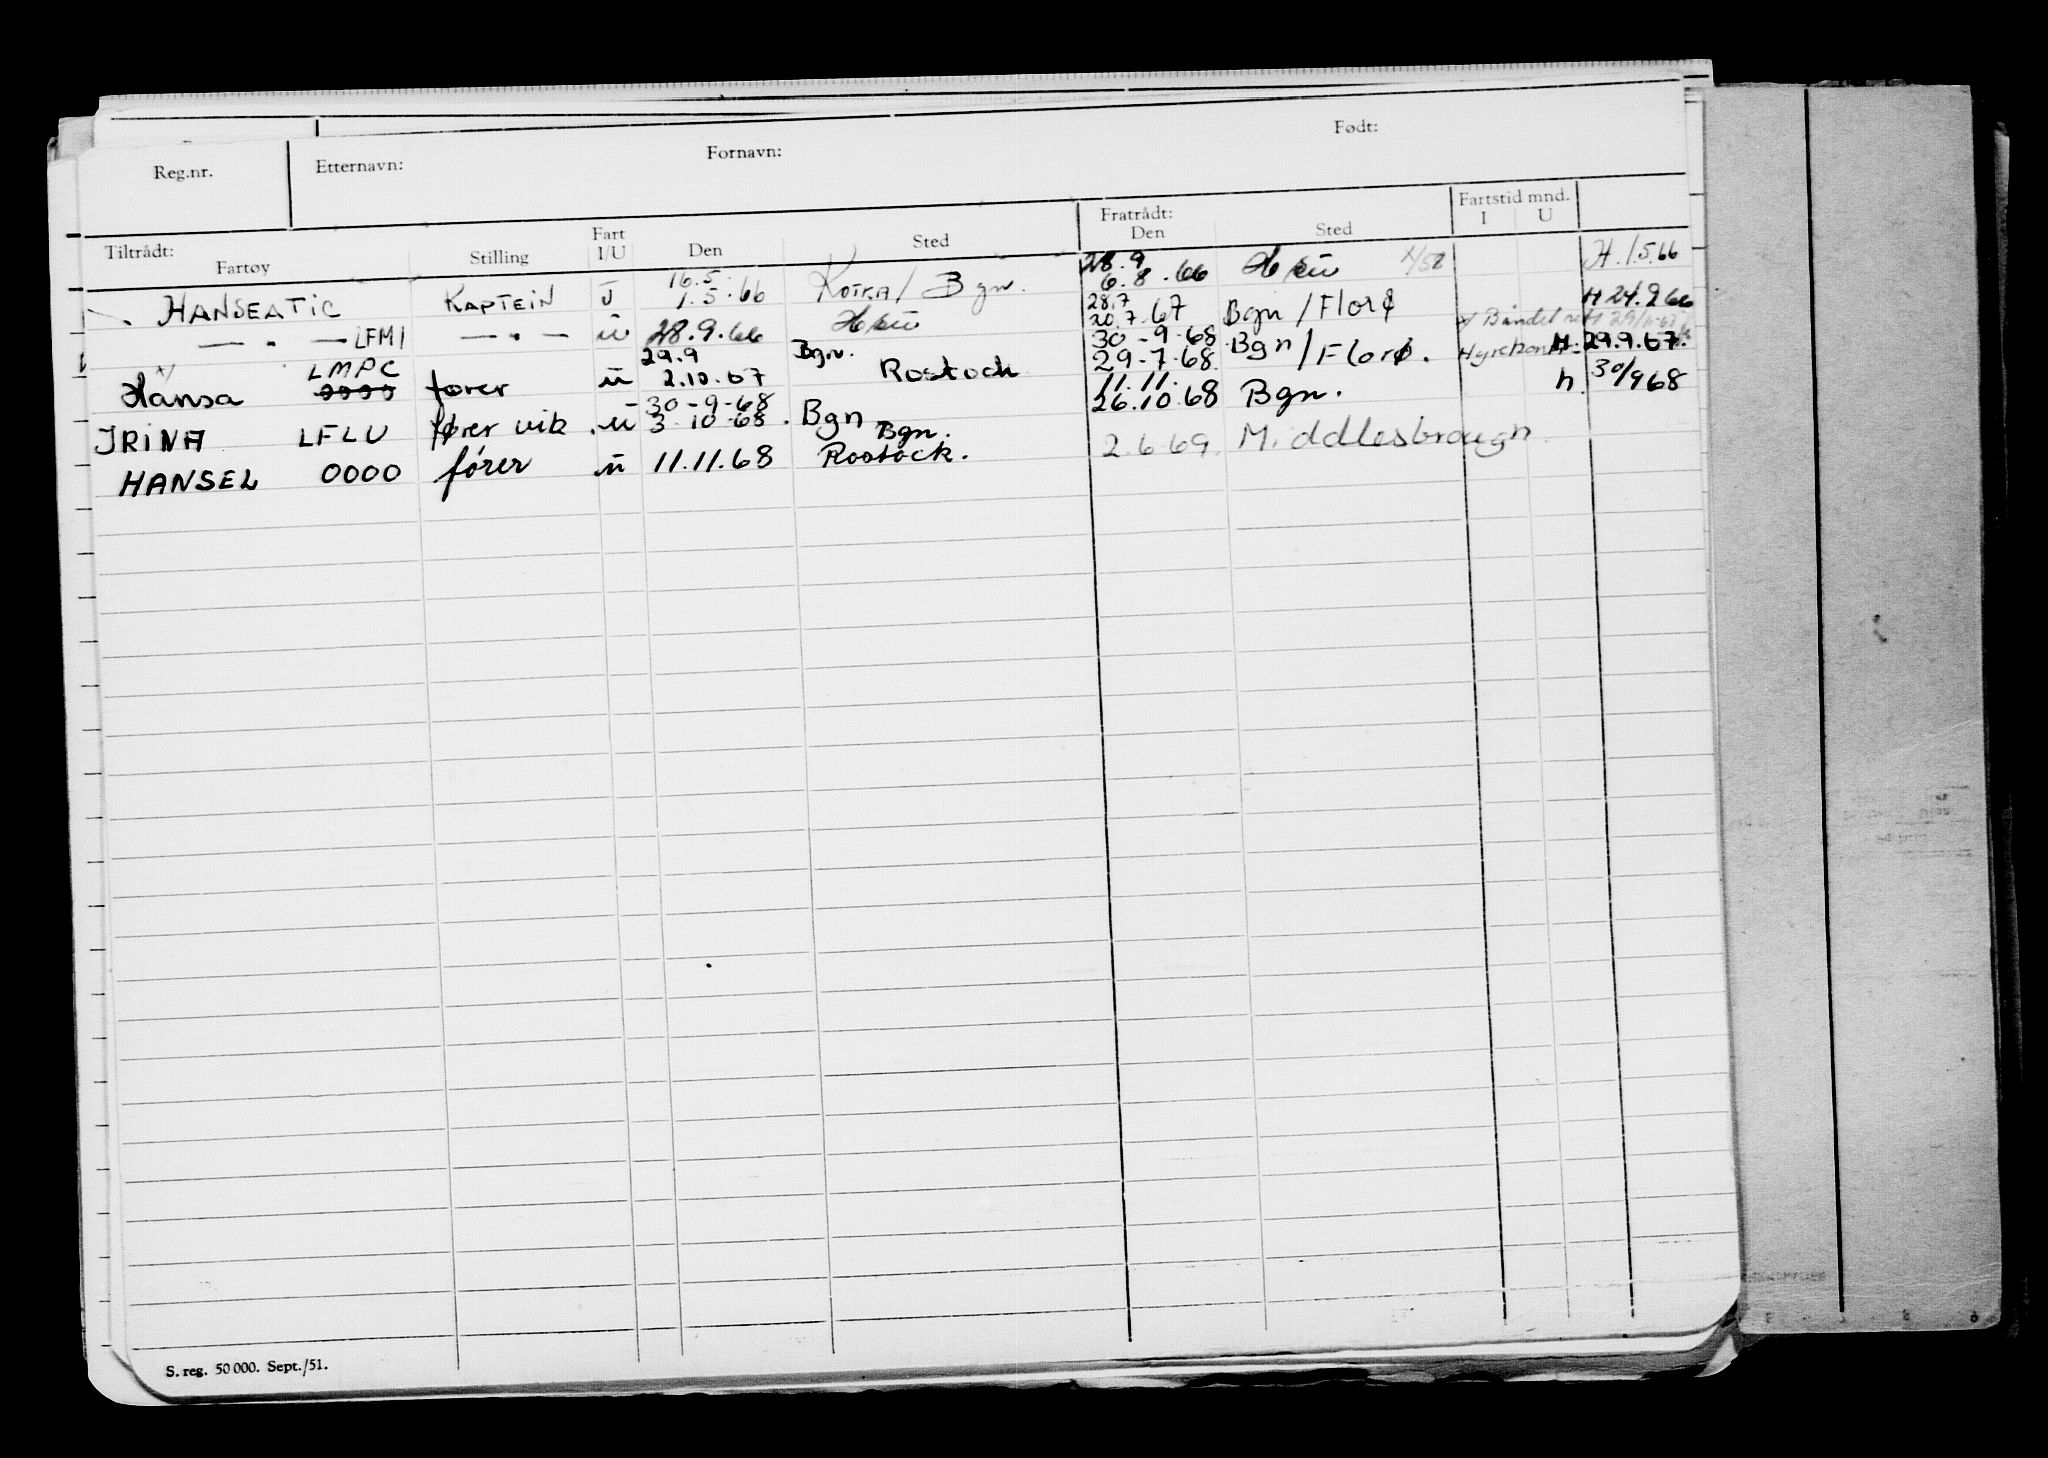 Reg.nr. Etternavn: Fornavn: Født:
Tiltrådt: Fratrådt: Fartstid mnd.
Fartøy Stilling Fart I/U Den Sted Den Sted I U
16.5. 28.9
HANSEATIC KAPTEIN U 1.5.66 KOTKA / Bgn. 6.8.66 H. 1.5.66
28.7 H 24.9.66
— " — LFMI — " — u 28.9.66 20.7.67 Bgn / Florø
LMPC 29.9 Bgn. 30-9-68
x/ Hansa fører u 2.10.67 Rostock 29-7-68. Bgn / Florø. H 29.9.67.
30-9-68 11.11.
IRINA LFLU fører vik. u 3.10.68. Bgn 26.10.68 Bgn. h. 30/9 68
Bgn.
HANSEL OOOO fører u 11.11.68 Rostock. 2.6.69. Middlesbrough
S. reg. 50 000. Sept./51.